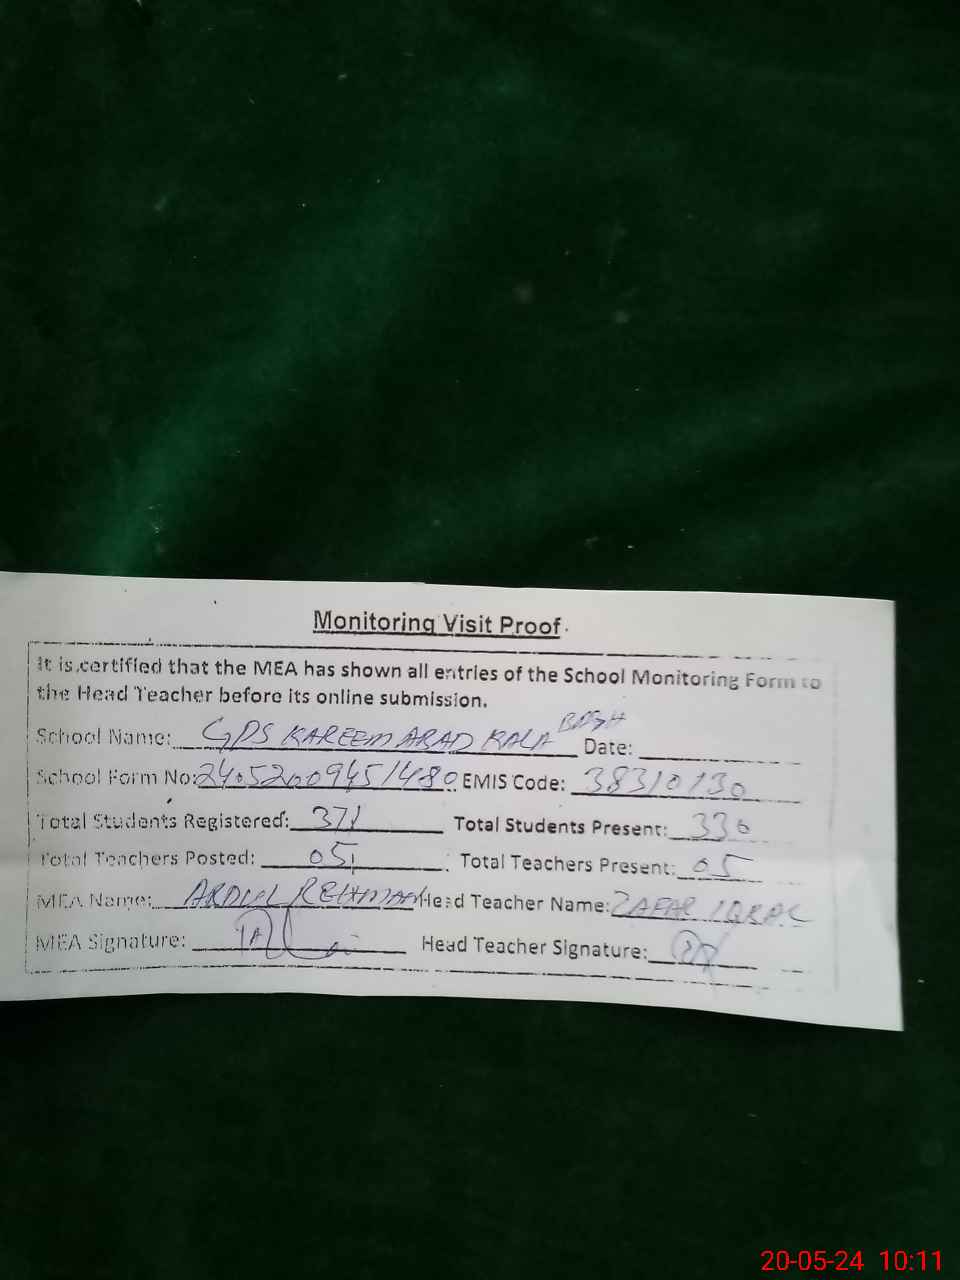 Monitoring Visit Proof.
It is certified that the MEA has shown all entries of the School Monitoring Form to
the Head Teacher before its online submission.
School Name: GPS KAREEM ABAD KALA BAGH Date:
School Form No: 24052009451480 EMIS Code: 38310130
Total Students Registered: 371 Total Students Present: 330
Total Teachers Posted: 05 Total Teachers Present: 05
MEA Name: ABDUL REHMAN Head Teacher Name: ZAFAR IQBAL
MEA Signature: Head Teacher Signature:
20-05-24 10:11